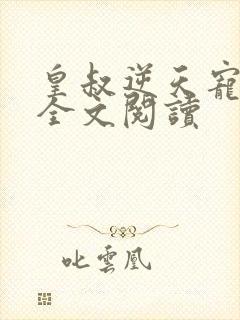 皇叔逆天寵
全文閱讀
叱雲凰